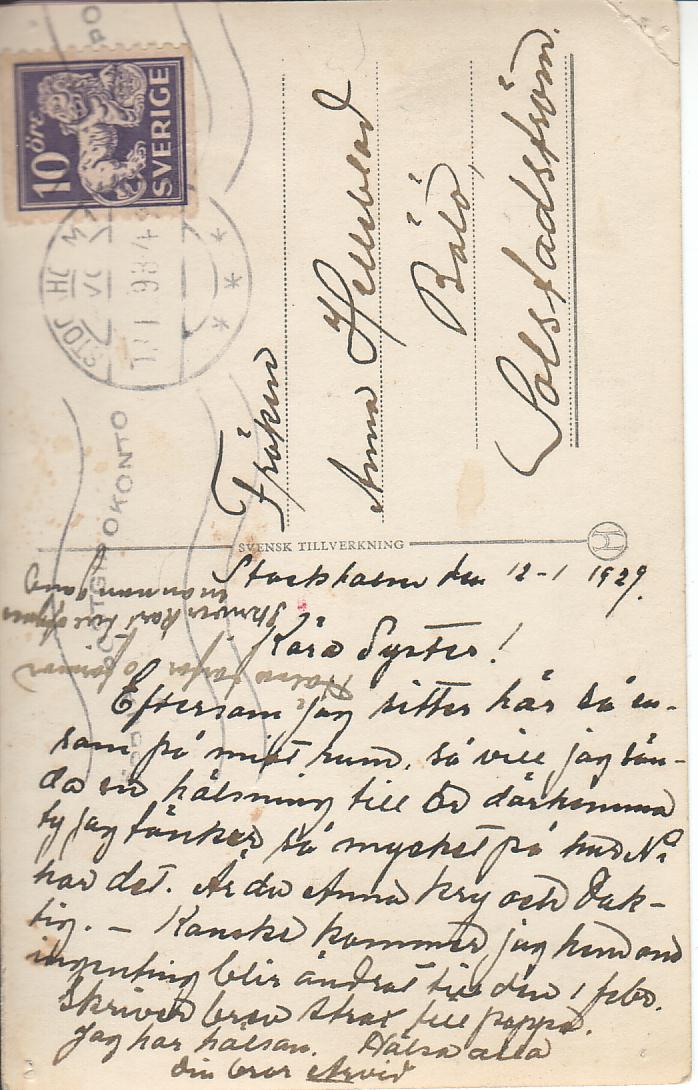 10 öre
SVERIGE
STOCKHOLM
POSTGIROKONTO
Fröken
Anna Hellblad
Bålö,
Solstadström.
SVENSK TILLVERKNING
Stockholm den 12-1 1929.
Kära Syster!
Eftersom jag sitter här så en-
sam på mitt rum, så vill jag sän-
da en hälsning till Er därhemma
ty jag tänker så mycket på hur Ni
har det. Är du Anna kry och duk-
tig. – Kanske kommer jag hem om
ingenting blir ändrat till den 1 febr.
Skriver brev strax till pappa.
Jag har hälsan. Hälsa alla
din bror Arvid
Hälsa farfar o farmor
skriver kort till
en annan gång